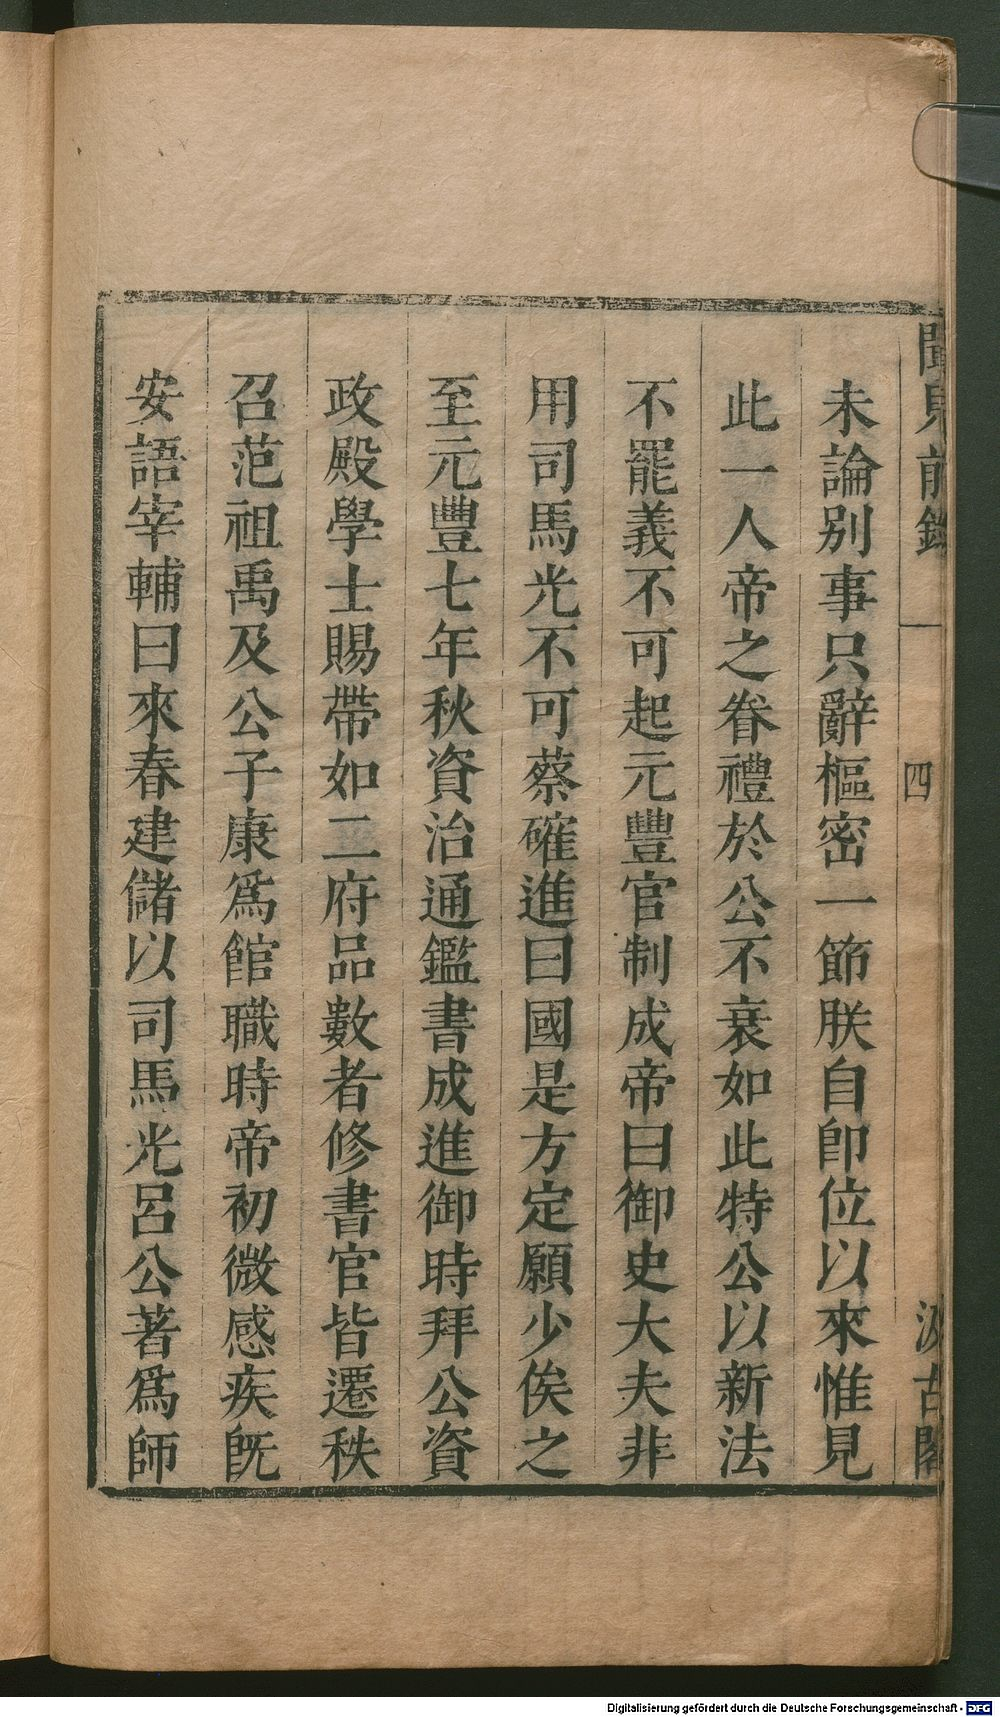 聞見前錄
四
汲古閣
未論別事只辭樞密一節朕自卽位以來惟見
此一人帝之眷禮於公不衰如此特公以新法
不罷義不可起元豐官制成帝曰御史大夫非
用司馬光不可蔡確進曰國是方定願少俟之
至元豐七年秋資治通鑑書成進御時拜公資
政殿學士賜帶如二府品數者修書官皆遷秩
召范祖禹及公子康爲館職時帝初微感疾旣
安語宰輔曰來春建儲以司馬光呂公著爲師
Digitalisierung gefördert durch die Deutsche Forschungsgemeinschaft - DFG